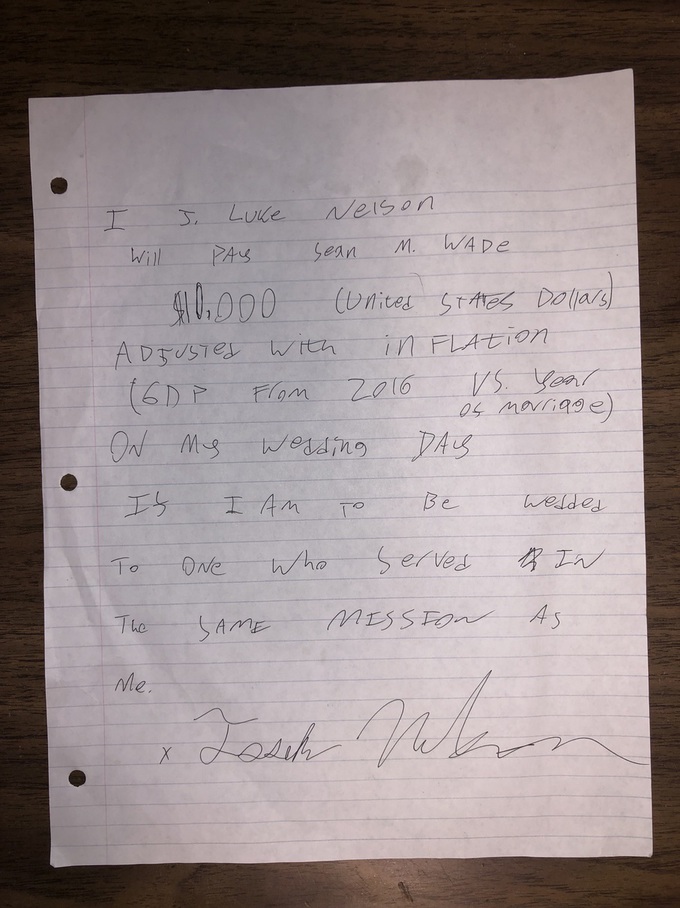 I J. Luke Nelson
Will PAy Sean M. WADe
$10,000 (United STATES Dollars)
ADJUSTED WITH inFLATion
(GDP From 2016 VS. year
of marriage)
ON My Wedding DAy
If I Am To Be wedded
To ONe Who Served IN
The SAME MISSION As
Me.
x Joseph Nelson